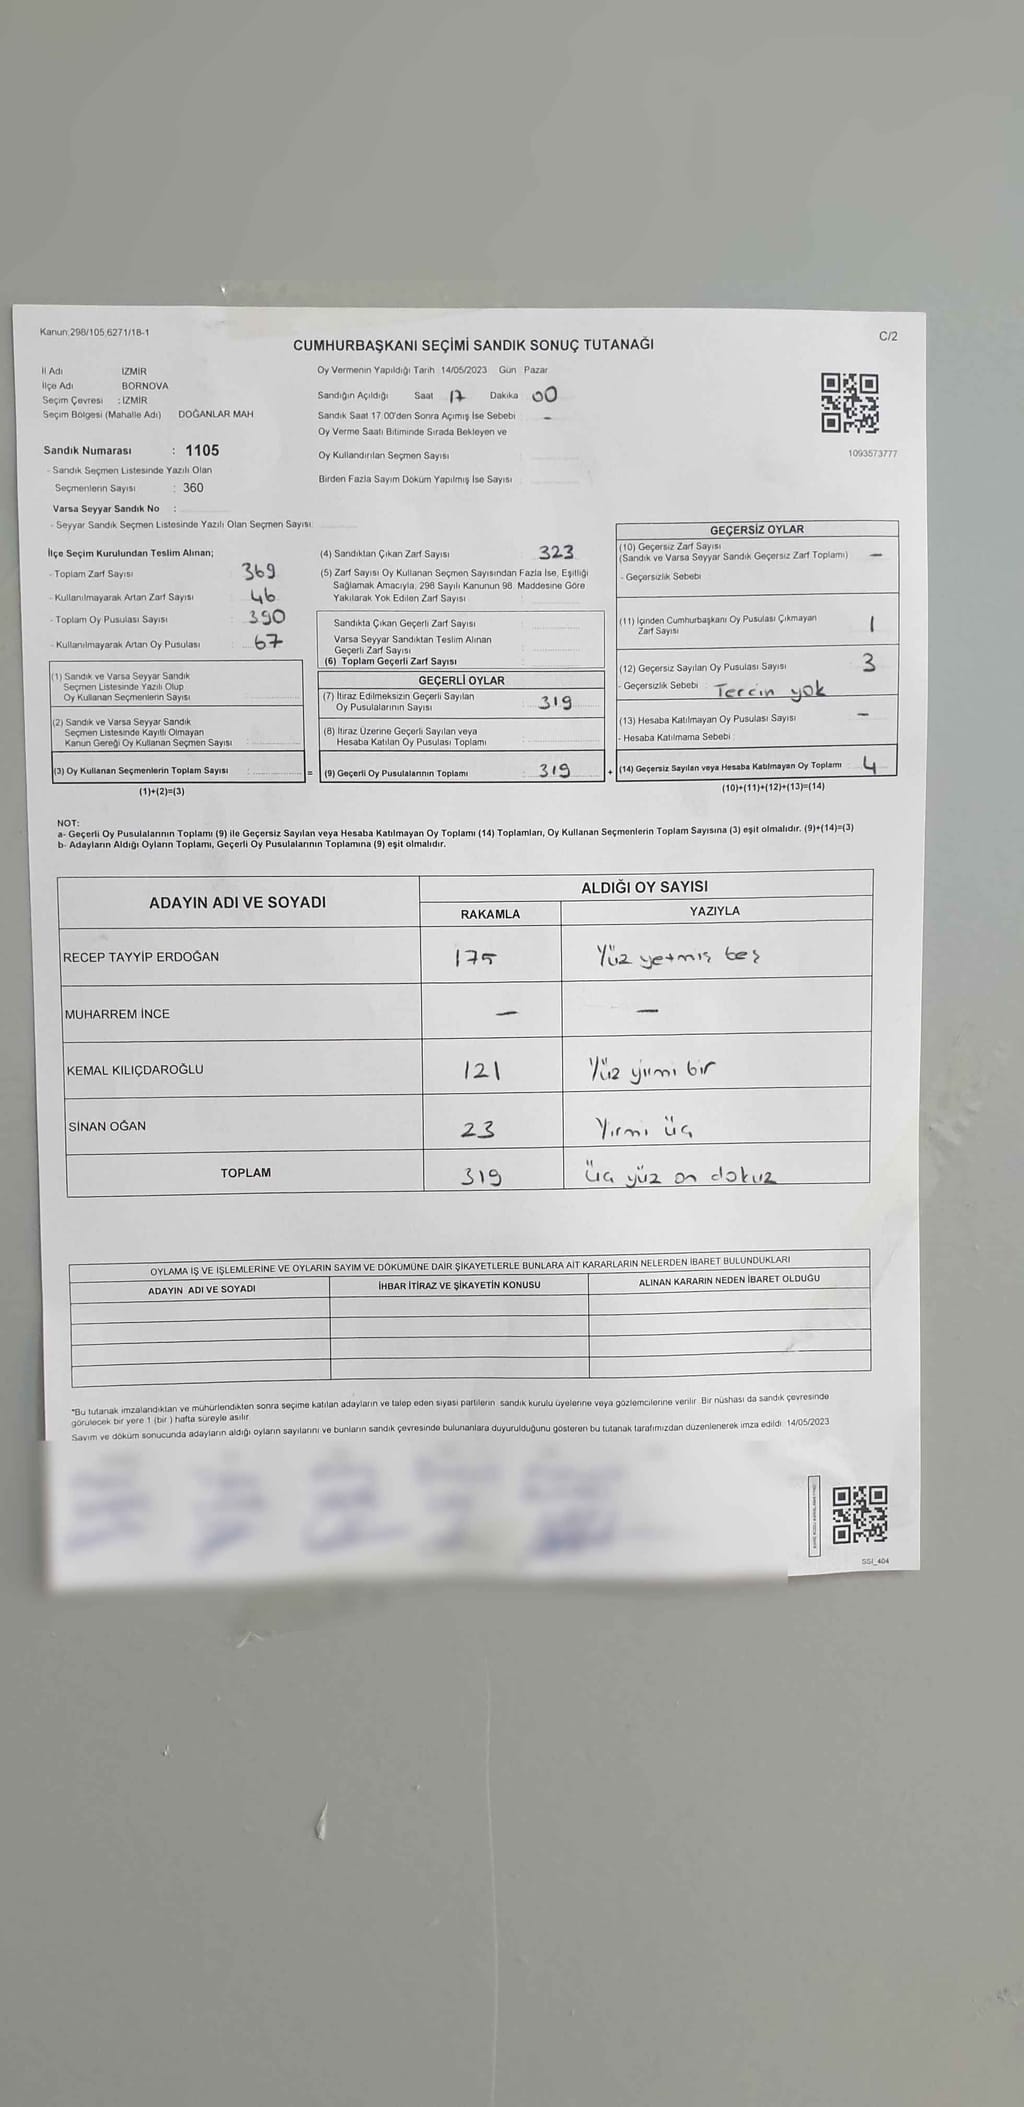 Kanun:298/105,6271/18-1
C/2
CUMHURBAŞKANI SEÇİMİ SANDIK SONUÇ TUTANAĞI
İl Adı İZMİR
İlçe Adı BORNOVA
Seçim Çevresi : İZMİR
Seçim Bölgesi (Mahalle Adı) DOĞANLAR MAH
Oy Vermenin Yapıldığı Tarih 14/05/2023 Gün Pazar
Sandığın Açıldığı Saat 17 Dakika 00
Sandık Saat 17.00'den Sonra Açımış İse Sebebi -
Oy Verme Saati Bitiminde Sırada Bekleyen ve
Oy Kullandırılan Seçmen Sayısı
Birden Fazla Sayım Döküm Yapılmış İse Sayısı
1093573777
Sandık Numarası : 1105
- Sandık Seçmen Listesinde Yazılı Olan
Seçmenlerin Sayısı : 360
Varsa Seyyar Sandık No :
- Seyyar Sandık Seçmen Listesinde Yazılı Olan Seçmen Sayısı:
İlçe Seçim Kurulundan Teslim Alınan;
- Toplam Zarf Sayısı 369
- Kullanılmayarak Artan Zarf Sayısı 46
- Toplam Oy Pusulası Sayısı : 390
- Kullanılmayarak Artan Oy Pusulası : 67
(1) Sandık ve Varsa Seyyar Sandık
Seçmen Listesinde Yazılı Olup
Oy Kullanan Seçmenlerin Sayısı
(2) Sandık ve Varsa Seyyar Sandık
Seçmen Listesinde Kayıtlı Olmayan
Kanun Gereği Oy Kullanan Seçmen Sayısı :
(3) Oy Kullanan Seçmenlerin Toplam Sayısı :
(1)+(2)=(3)
(4) Sandıktan Çıkan Zarf Sayısı 323
(5) Zarf Sayısı Oy Kullanan Seçmen Sayısından Fazla İse, Eşitliği
Sağlamak Amacıyla, 298 Sayılı Kanunun 98. Maddesine Göre
Yakılarak Yok Edilen Zarf Sayısı
Sandıkta Çıkan Geçerli Zarf Sayısı
Varsa Seyyar Sandıktan Teslim Alınan
Geçerli Zarf Sayısı
(6) Toplam Geçerli Zarf Sayısı
GEÇERLİ OYLAR
(7) İtiraz Edilmeksizin Geçerli Sayılan
Oy Pusulalarının Sayısı : 319
(8) İtiraz Üzerine Geçerli Sayılan veya
Hesaba Katılan Oy Pusulası Toplamı
= (9) Geçerli Oy Pusulalarının Toplamı : 319 +
GEÇERSİZ OYLAR
(10) Geçersiz Zarf Sayısı
(Sandık ve Varsa Seyyar Sandık Geçersiz Zarf Toplamı) -
- Geçersizlik Sebebi
(11) İçinden Cumhurbaşkanı Oy Pusulası Çıkmayan
Zarf Sayısı 1
(12) Geçersiz Sayılan Oy Pusulası Sayısı 3
- Geçersizlik Sebebi : Tercin yok
(13) Hesaba Katılmayan Oy Pusulası Sayısı -
- Hesaba Katılmama Sebebi :
(14) Geçersiz Sayılan veya Hesaba Katılmayan Oy Toplamı : 4
(10)+(11)+(12)+(13)=(14)
NOT:
a- Geçerli Oy Pusulalarının Toplamı (9) ile Geçersiz Sayılan veya Hesaba Katılmayan Oy Toplamı (14) Toplamları, Oy Kullanan Seçmenlerin Toplam Sayısına (3) eşit olmalıdır. (9)+(14)=(3)
b- Adayların Aldığı Oyların Toplamı, Geçerli Oy Pusulalarının Toplamına (9) eşit olmalıdır.
ADAYIN ADI VE SOYADI ALDIĞI OY SAYISI
RAKAMLA YAZIYLA
RECEP TAYYİP ERDOĞAN 175 Yüz yetmiş beş
MUHARREM İNCE - -
KEMAL KILIÇDAROĞLU 121 Yüz yirmi bir
SİNAN OĞAN 23 Yirmi üç
TOPLAM 319 üç yüz on dokuz
OYLAMA İŞ VE İŞLEMLERİNE VE OYLARIN SAYIM VE DÖKÜMÜNE DAİR ŞİKAYETLERLE BUNLARA AİT KARARLARIN NELERDEN İBARET BULUNDUKLARI
ADAYIN ADI VE SOYADI İHBAR İTİRAZ VE ŞİKAYETİN KONUSU ALINAN KARARIN NEDEN İBARET OLDUĞU
*Bu tutanak imzalandıktan ve mühürlendikten sonra seçime katılan adayların ve talep eden siyasi partilerin sandık kurulu üyelerine veya gözlemcilerine verilir. Bir nüshası da sandık çevresinde
görülecek bir yere 1 (bir ) hafta süreyle asılır.
Sayım ve döküm sonucunda adayların aldığı oyların sayılarını ve bunların sandık çevresinde bulunanlara duyurulduğunu gösteren bu tutanak tarafımızdan düzenlenerek imza edildi. 14/05/2023
SSI_404